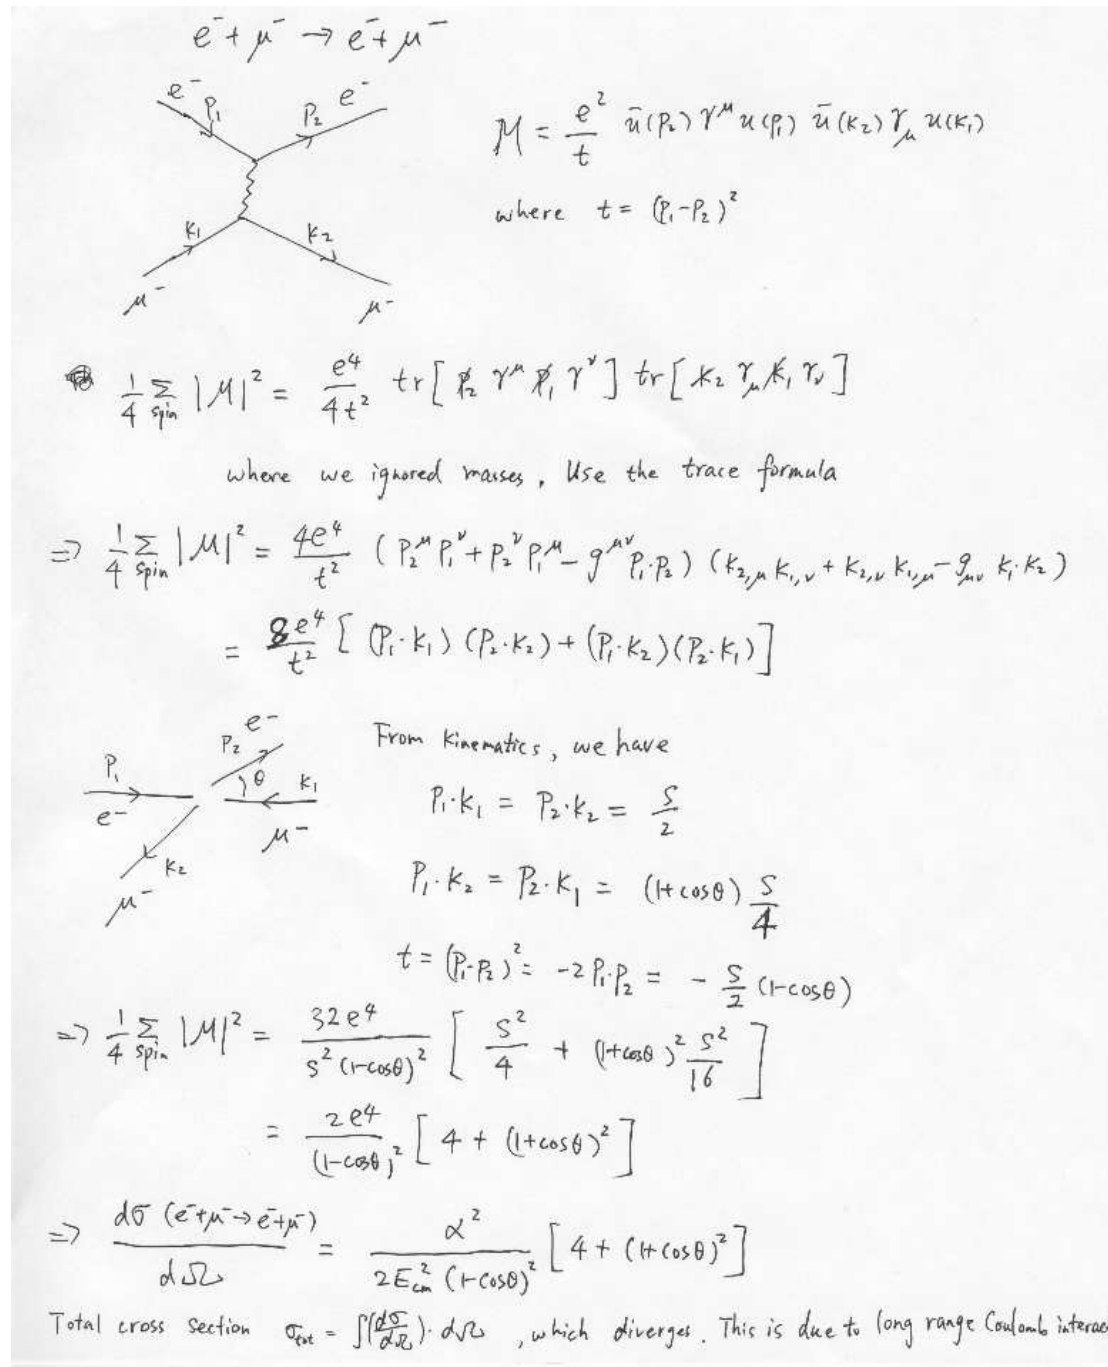 e⁻ + μ⁻ → e⁻ + μ⁻
e⁻ P₁ P₂ e⁻
M = e²/t ū(P₂) γ^μ u(P₁) ū(K₂) γ_μ u(K₁)
where t = (P₁-P₂)²
K₁ K₂
μ⁻ μ⁻
1/4 Σ_spin |M|² = e⁴/4t² tr[ p̸₂ γ^μ p̸₁ γ^ν ] tr[ k̸₂ γ_μ k̸₁ γ_ν ]
where we ignored masses. Use the trace formula
⇒ 1/4 Σ_spin |M|² = 4e⁴/t² (P₂^μ P₁^ν + P₂^ν P₁^μ - g^μν P₁·P₂) (K₂,μ K₁,ν + K₂,ν K₁,μ - g_μν K₁·K₂)
= 8e⁴/t² [ (P₁·K₁) (P₂·K₂) + (P₁·K₂)(P₂·K₁) ]
P₁ e⁻ P₂ e⁻ θ K₁ μ⁻ K₂ μ⁻
From kinematics, we have
P₁·K₁ = P₂·K₂ = S/2
P₁·K₂ = P₂·K₁ = (1+cosθ) S/4
t = (P₁-P₂)² = -2P₁·P₂ = - S/2 (1-cosθ)
⇒ 1/4 Σ_spin |M|² = 32e⁴/S²(1-cosθ)² [ S²/4 + (1+cosθ)² S²/16 ]
= 2e⁴/(1-cosθ)² [ 4 + (1+cosθ)² ]
⇒ dσ (e⁻+μ⁻→e⁻+μ⁻)/dΩ = α²/2E_cm² (1-cosθ)² [ 4 + (1+cosθ)² ]
Total cross section σ_tot = ∫(dσ/dΩ)·dΩ , which diverges. This is due to long range Coulomb interac